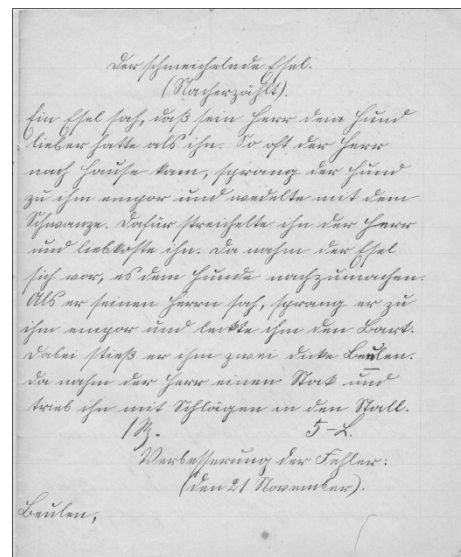 Der schmeichelnde Esel.
(Nacherzählt).
Ein Esel sah, daß sein Herr den Hund
lieber hatte als ihn. So oft der Herr
nach Hause kam, sprang der Hund
zu ihm empor und wedelte mit dem
Schwanze. Dafür streichelte ihn der Herr
und liebkoste ihn. Da nahm der Esel
sich vor, es dem Hunde nachzumachen.
Als er seinen Herrn sah, sprang er zu
ihm empor und leckte ihm den Bart.
Dabei stieß er ihm zwei dicke Beulen.
Da nahm der Herr einen Stock und
trieb ihn mit Schlägen in den Stall.
Verbesserung der Fehler:
(den 21 November).
Beulen,